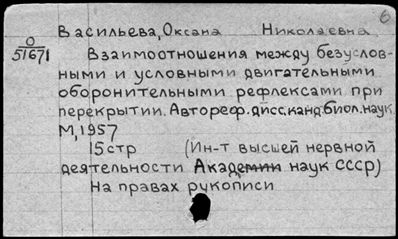 6
Васильева, Оксана Николаевна
О
51671
Взаимоотношения между безуслов-
ными и условными двигательными
оборонительными рефлексами при
перекрытии. Автореф. дисс. канд. биол. наук.
М, 1957
15 стр (Ин-т высшей нервной
деятельности Академии наук СССР)
На правах рукописи